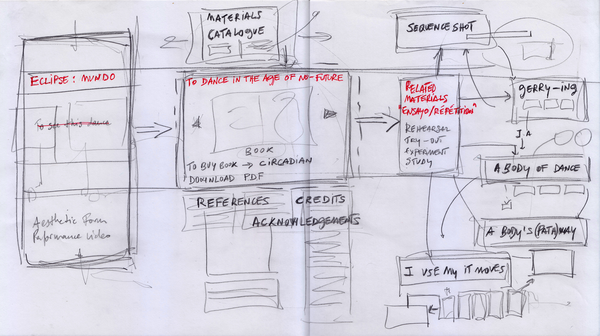 ECLIPSE : MUNDO
To see this dance
Aesthetic Form
Performance video
MATERIALS
CATALOGUE
TO DANCE IN THE AGE OF NO-FUTURE
BOOK
TO BUY BOOK → CIRCADIAN
DOWNLOAD PDF
REFERENCES
CREDITS
ACKNOWLEDGEMENTS
SEQUENCE SHOT
RELATED
MATERIALS
"ENSAYO/RÉPÉTITION"
REHEARSAL
TRY-OUT
EXPERIMENT
STUDY
GERRY-ING
A BODY OF DANCE
A BODY'S (PATH)WAY
I USE MY IT MOVES